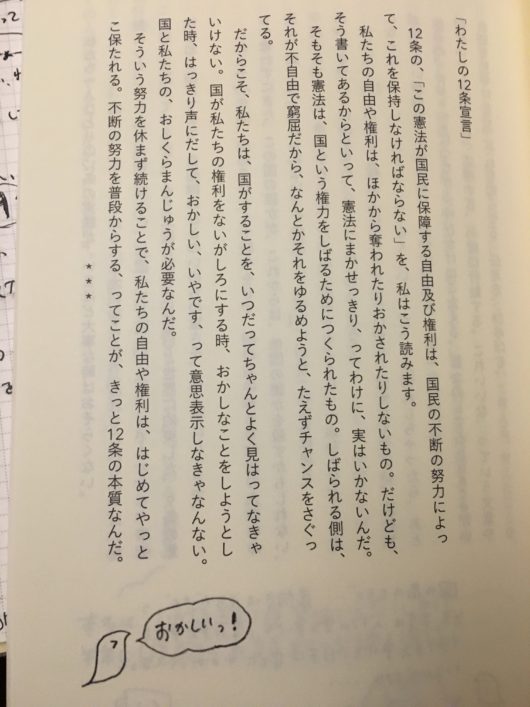 「わたしの12条宣言」
12条の、「この憲法が国民に保障する自由及び権利は、国民の不断の努力によっ
て、これを保持しなければならない」を、私はこう読みます。
私たちの自由や権利は、ほかから奪われたりおかされたりしないもの。だけども、
そう書いてあるからといって、憲法にまかせっきり、ってわけに、実はいかないんだ。
そもそも憲法は、国という権力をしばるためにつくられたもの。しばられる側は、
それが不自由で窮屈だから、なんとかそれをゆるめようと、たえずチャンスをさぐっ
てる。
だからこそ、私たちは、国がすることを、いつだってちゃんとよく見はってなきゃ
いけない。国が私たちの権利をないがしろにする時、おかしなことをしようとし
た時、はっきり声にだして、おかしい、いやです、って意思表示しなきゃなんない。
国と私たちの、おしくらまんじゅうが必要なんだ。
そういう努力を休まず続けることで、私たちの自由や権利は、はじめてやっと
こ保たれる。不断の努力を普段からする、ってことが、きっと12条の本質なんだ。
***
おかしいっ!